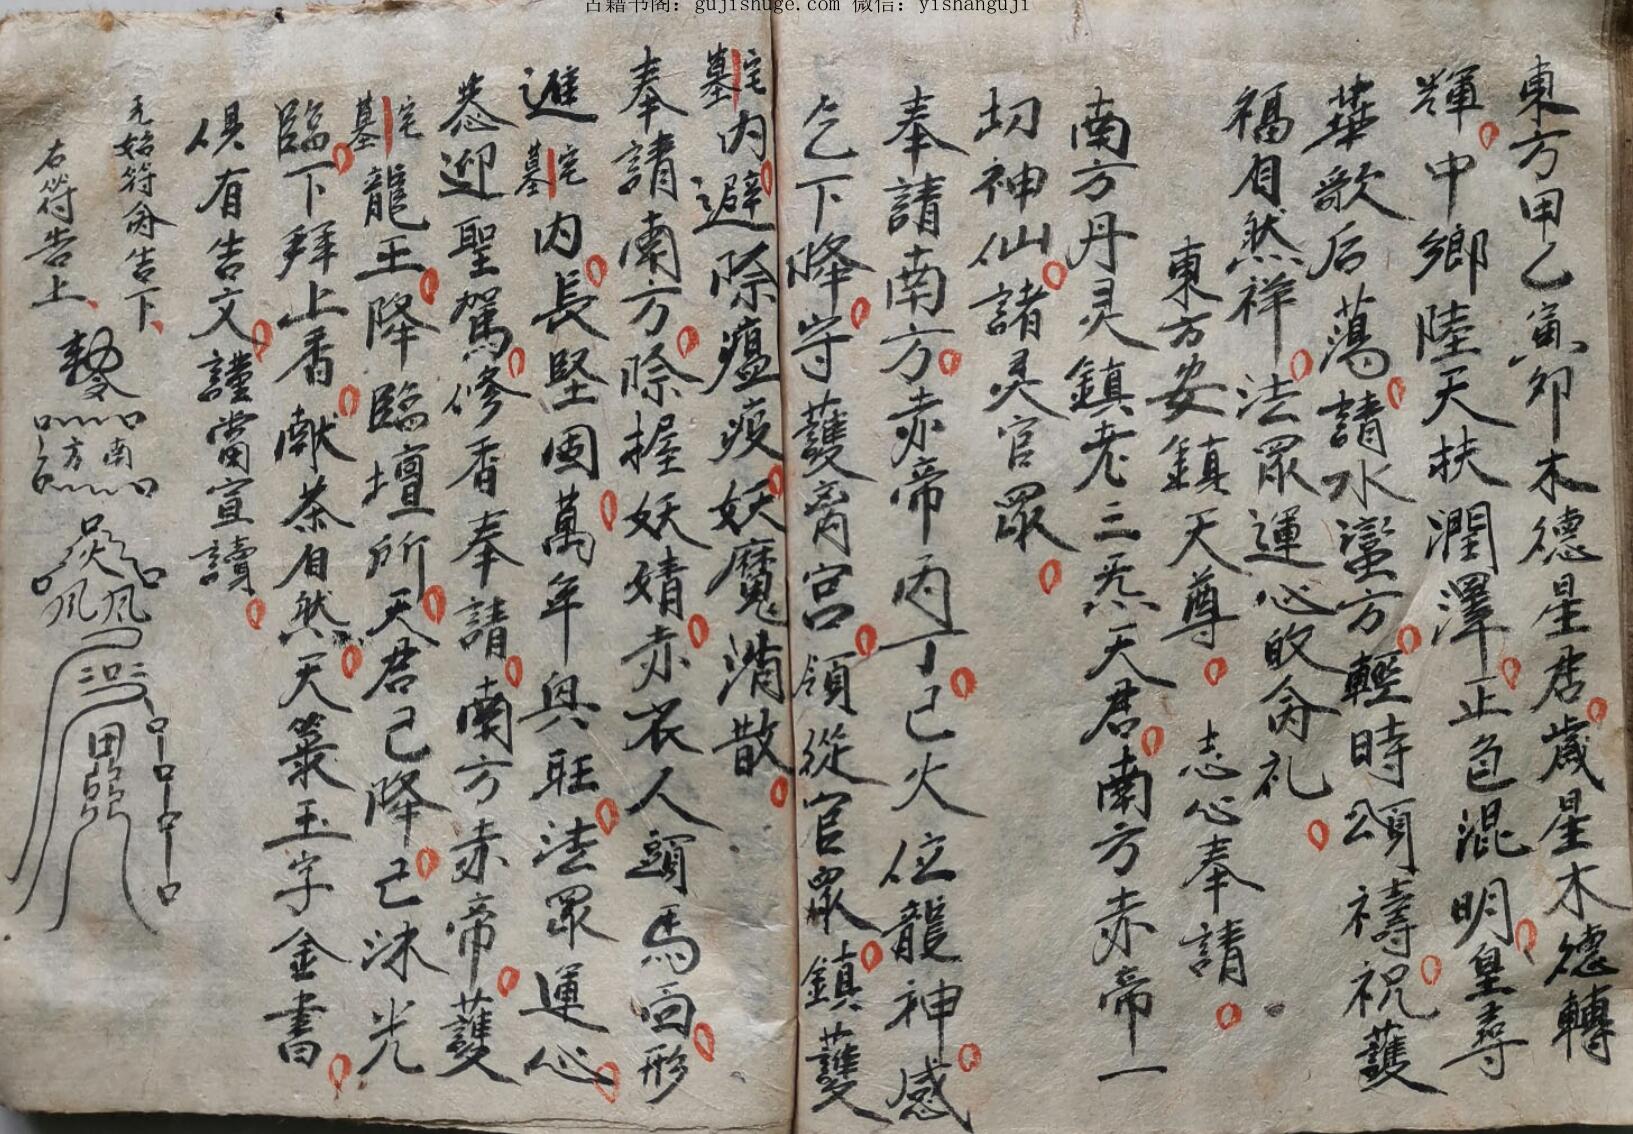 古籍书阁：gujishuge.com 微信：yishanguji
東方甲乙寅卯木德星君歲星木德轉
輝中鄉陸天扶潤澤正色混明皇尋
華歌后蕩請水蛮方輕時頌禱祝護
福自然祥法眾運心敗合礼
東方安鎮天尊 志心奉請
南方丹灵鎮老三炁天君南方赤帝一
切神仙諸灵官眾
奉請南方赤帝丙丁己火位龍神感
乞下降守護齊宫領從官眾鎮護
宅墓内避除瘟疫妖魔消散
奉請南方除握妖婧赤衣人頭馬面形
遊宅墓内長堅固萬年興旺法眾運心
恭迎聖駕修香奉請南方赤帝護
宅墓龍王降臨壇所天君己降己沐光
臨下拜上香献茶自然天篆玉字金書
俱有告文謹當宣讀
元始符命告下
右符告上
南方